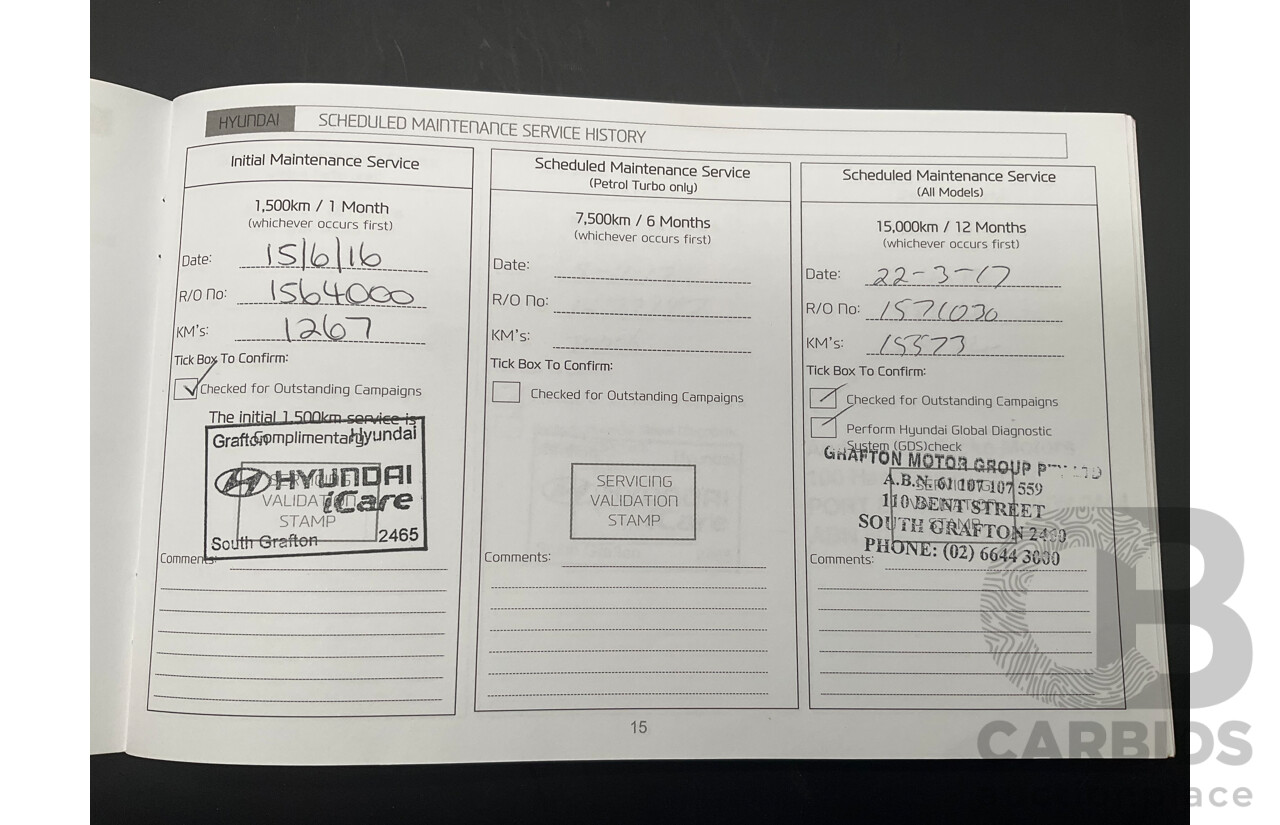 HYUNDAI SCHEDULED MAINTENANCE SERVICE HISTORY
Initial Maintenance Service
1,500km / 1 Month
(whichever occurs first)
Date: 15/6/16
R/O No: 1564000
KM's: 1267
Tick Box To Confirm:
Checked for Outstanding Campaigns
The initial 1,500km service is
Complimentary
Grafton Hyundai
HYUNDAI
iCare
SERVICING
VALIDATION
STAMP
South Grafton 2465
Comments:
Scheduled Maintenance Service
(Petrol Turbo only)
7,500km / 6 Months
(whichever occurs first)
Date:
R/O No:
KM's:
Tick Box To Confirm:
Checked for Outstanding Campaigns
SERVICING
VALIDATION
STAMP
Comments:
Scheduled Maintenance Service
(All Models)
15,000km / 12 Months
(whichever occurs first)
Date: 22-3-17
R/O No: 1571030
KM's: 15573
Tick Box To Confirm:
Checked for Outstanding Campaigns
Perform Hyundai Global Diagnostic
System (GDS)check
GRAFTON MOTOR GROUP
A.B.N. 61 107 107 559
110 BENT STREET
SOUTH GRAFTON
PHONE: (02) 6644 3000
Comments:
15
CARBIDS